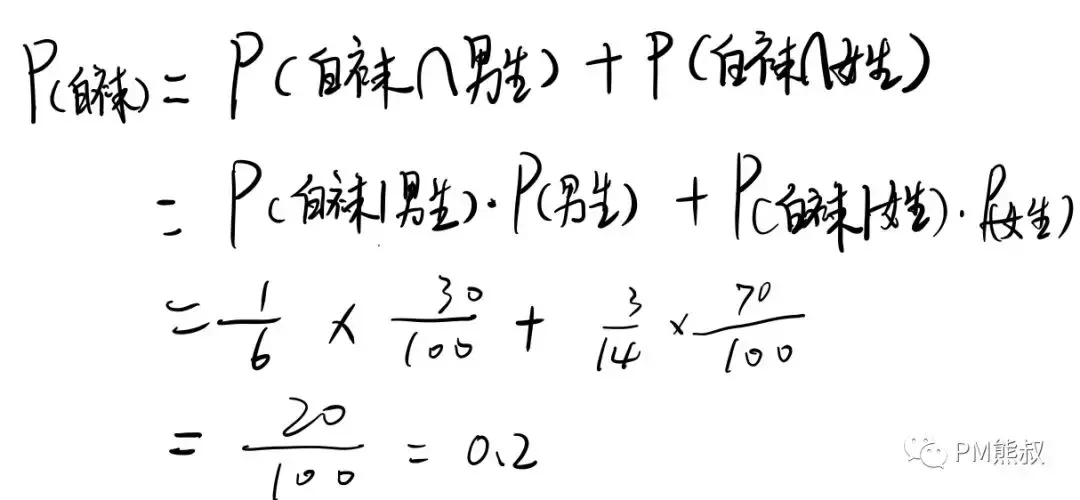 P(白袜) = P(白袜∩男生) + P(白袜∩女生)
= P(白袜|男生)·P(男生) + P(白袜|女生)·P(女生)
= 1/6 × 30/100 + 3/14 × 70/100
= 20/100 = 0.2
PM熊叔